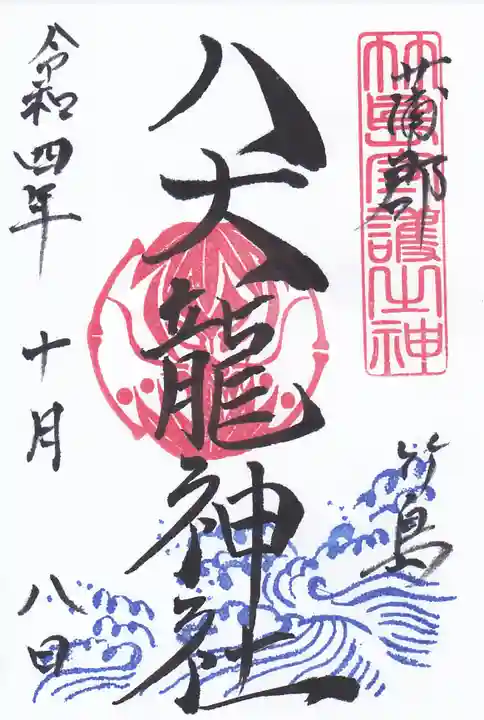 蒲郡
竹島守護之神
竹島
八大龍神社
令和四年 十月 八日